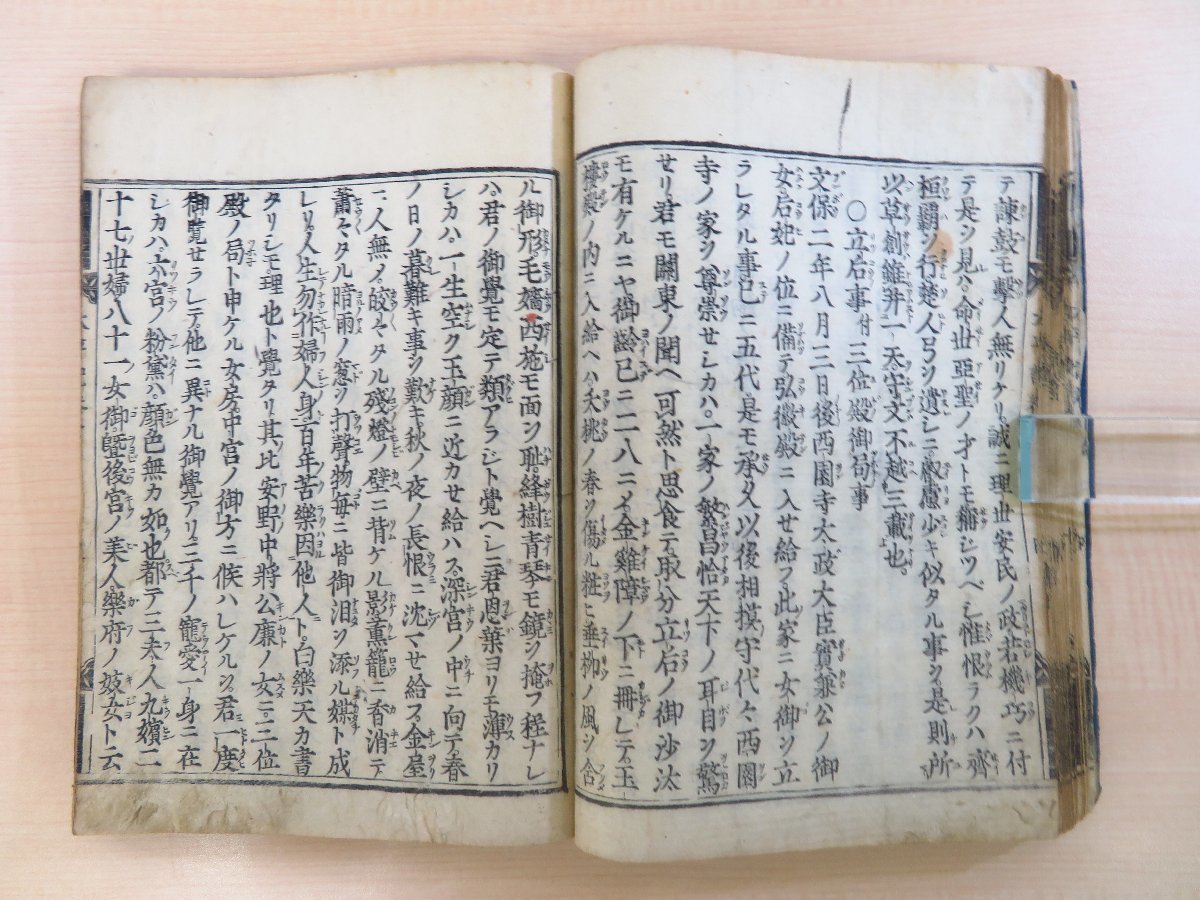 テ諫鼓モ撃人無リケリ誠ニ理世安民ノ政若機巧ニ付
テ是ヲ見ハ命世亜聖ノ才トモ稱シツベシ惟恨ラクハ齊
桓覇ヲ行楚人弓ヲ遺シニ叡慮少キ似タル事ヲ是則所
以草創雖并一天守文不越三載也
〇立后事付三位殿御局事
文保二年八月三日後西園寺太政大臣實兼公ノ御
女后妃ノ位ニ備テ弘徽殿ニ入せ給フ此家ニ女御ヲ立
ラレタル事已ニ五代是モ承久以後相摸守代々西園
寺ノ家ヲ尊崇せシカハ一家ノ繁昌恰天下ノ耳目ヲ驚
せリ君モ關東ノ聞ヘ可然ト思食テ取分立后ノ御沙汰
モ有ケルニヤ御齢已ニ二八ニメ金雞障ノ下ニ冊レテ玉
樓殿ノ内ニ入給ヘハ夭桃ノ春ヲ傷ル粧ヒ垂柳ノ風ヲ含
ル御形毛嬙西施モ面ヲ耻絳樹青琴モ鏡ヲ掩フ程ナレ
ハ君ノ御覺モ定テ類アラジト覺ヘシニ君恩葉ヨリモ薄カリ
シカハ一生空ク玉顔ニ近カせ給ハス深宮ノ中ニ向テ春
ノ日ノ暮難キ事ヲ歎キ秋ノ夜ノ長恨ニ沈マせ給フ金屋
ニ人無メ皎々タル殘燈ノ壁ニ背ケル影薫籠ニ香消テ
蕭々タル暗雨ノ窓ヲ打聲物毎ニ皆御泪ヲ添ル媒ト成
レリ人生勿作婦人身百年苦樂因他人ト白樂天カ書
タリシモ理也ト覺タリ其比安野中將公廉ノ女ニ三位
殿ノ局ト申ケル女房中宮ノ御方ニ候ハレケルヲ君一度
御覽せラレテ他ニ異ナル御覺アリ三千ノ寵愛一身ニ在
シカハ六宮ノ粉黛ハ顔色無カ如也都テ三夫人九嬪二
十七世婦八十一女御曁後宮ノ美人樂府ノ妓女ト云